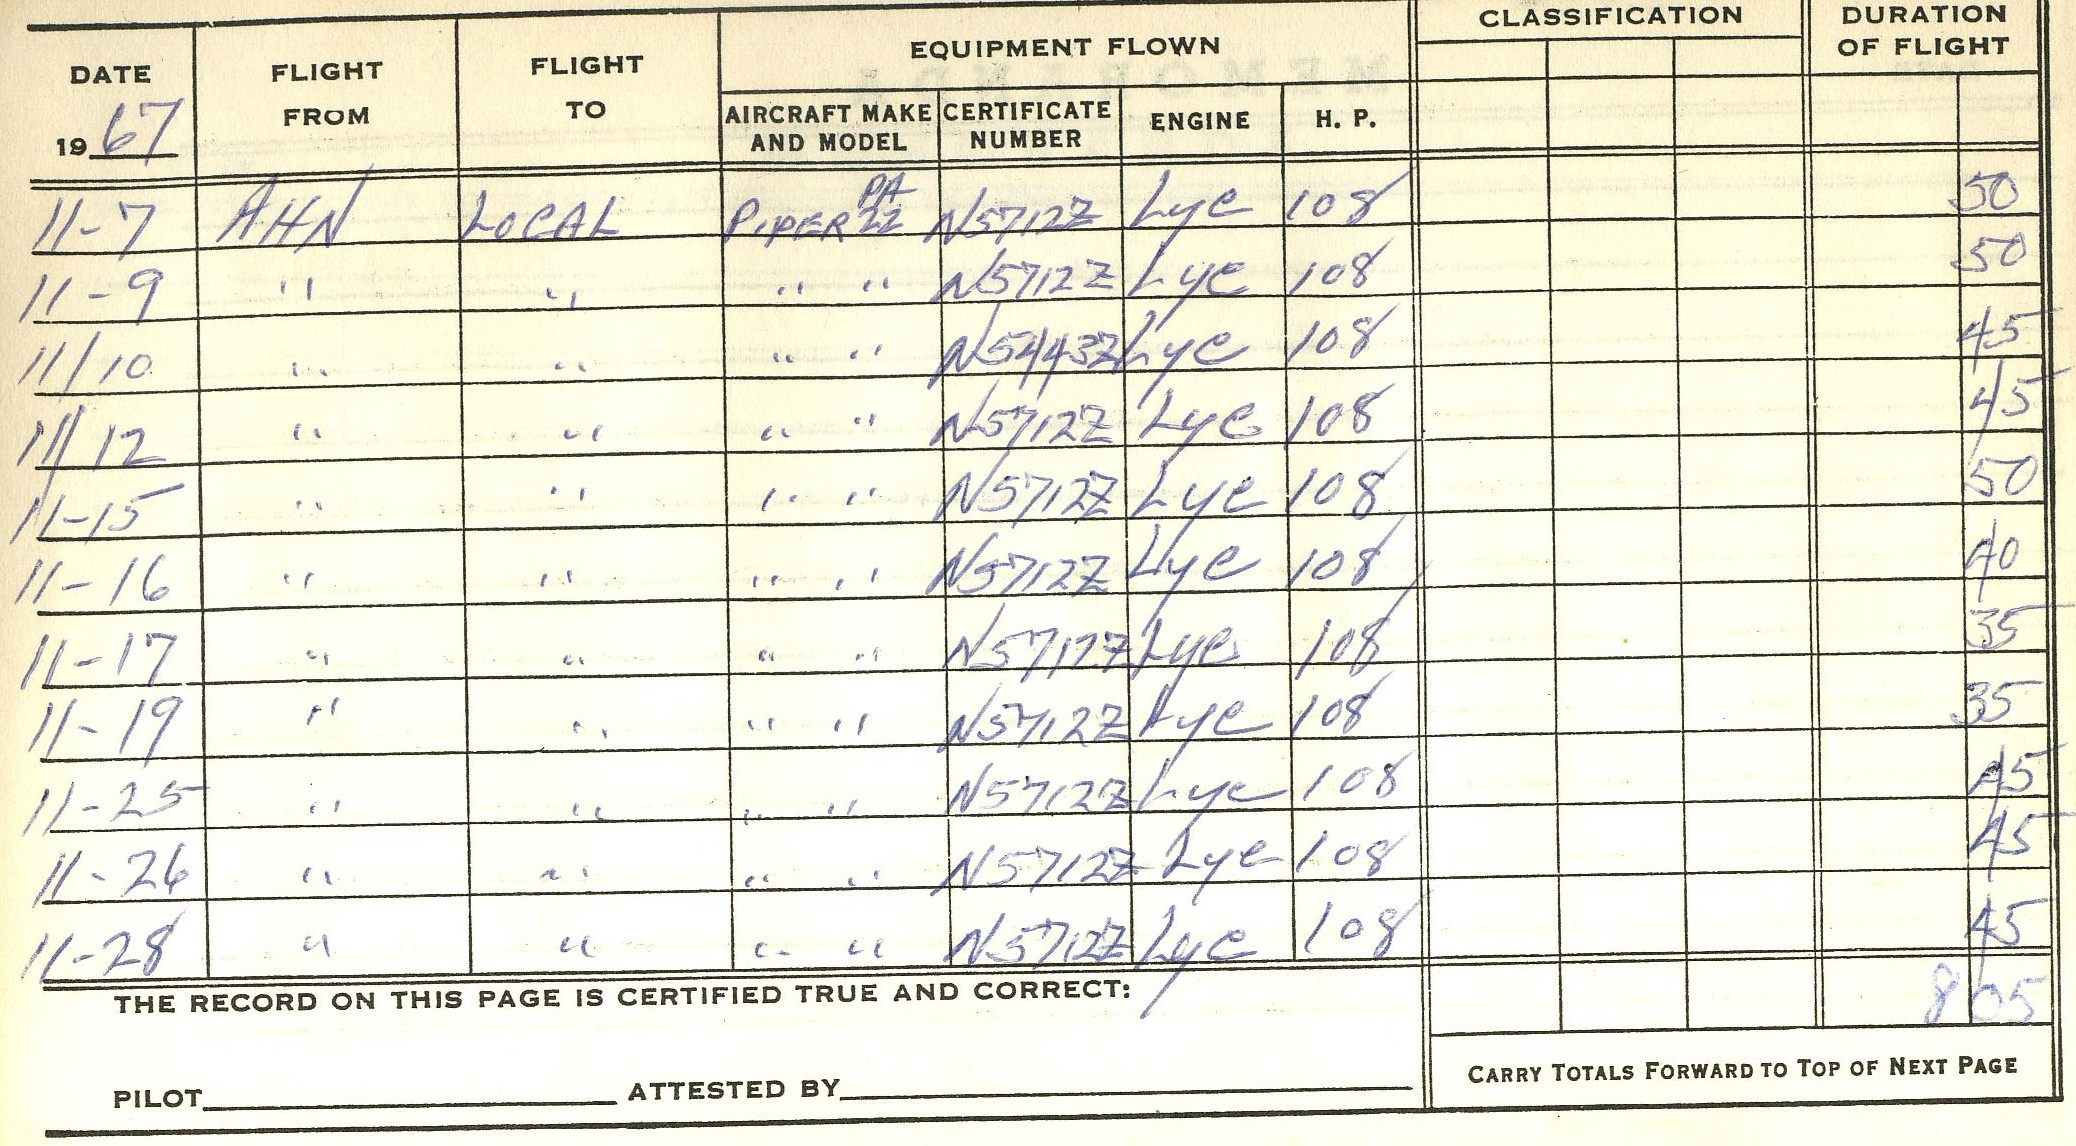 DATE
19 67
FLIGHT
FROM
FLIGHT
TO
EQUIPMENT FLOWN
AIRCRAFT MAKE
AND MODEL
CERTIFICATE
NUMBER
ENGINE
H. P.
CLASSIFICATION
DURATION
OF FLIGHT
11-7 AHN LOCAL PIPER PA 22 N5712Z Lyc 108 50
11-9 " " " " N5712Z Lyc 108 50
11/10 " " " " N5443Z Lyc 108 45
11/12 " " " " N5712Z Lyc 108 45
11-15 " " " " N5712Z Lyc 108 50
11-16 " " " " N5712Z Lyc 108 40
11-17 " " " " N5712Z Lyc 108 35
11-19 " " " " N5712Z Lyc 108 35
11-25 " " " " N5712Z Lyc 108 45
11-26 " " " " N5712Z Lyc 108 45
11-28 " " " " N5712Z Lyc 108 45
THE RECORD ON THIS PAGE IS CERTIFIED TRUE AND CORRECT:
8 05
PILOT ATTESTED BY
CARRY TOTALS FORWARD TO TOP OF NEXT PAGE